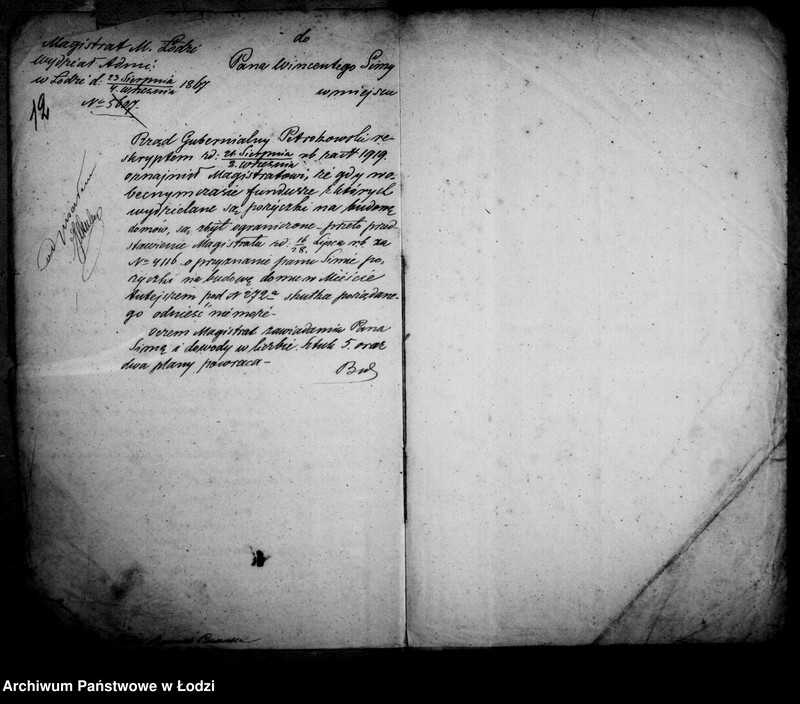 Magistrat M. Łodzi
Wydział Admi:
w Łodzi d: 23 Sierpnia
4 Września 1867
№ 5607.
12
do
Pana Wincentego Simy
w miejscu
Rząd Gubernialny Petrokowski re-
skryptem zd: 21 Sierpnia
2 Września rb. za № 1919.
oznajmił Magistratowi, że gdy na o-
becnym czasie fundusze z których
wydzielane są pożyczki na budowę
domów, są zbyt ograniczone – przeto przed-
stawienie Magistratu zd: 16
28 Lipca rb za
№ 4116 o przyznanie panu Simie po-
życzki na budowę domu w Mieście
tutejszem pod № 272a skutku pożądane-
go odnieść nie może –
o czem Magistrat zawiadamia Pana
Simę i dowody w liczbie sztuk 5. oraz
dwa plany powraca –
Archiwum Państwowe w Łodzi